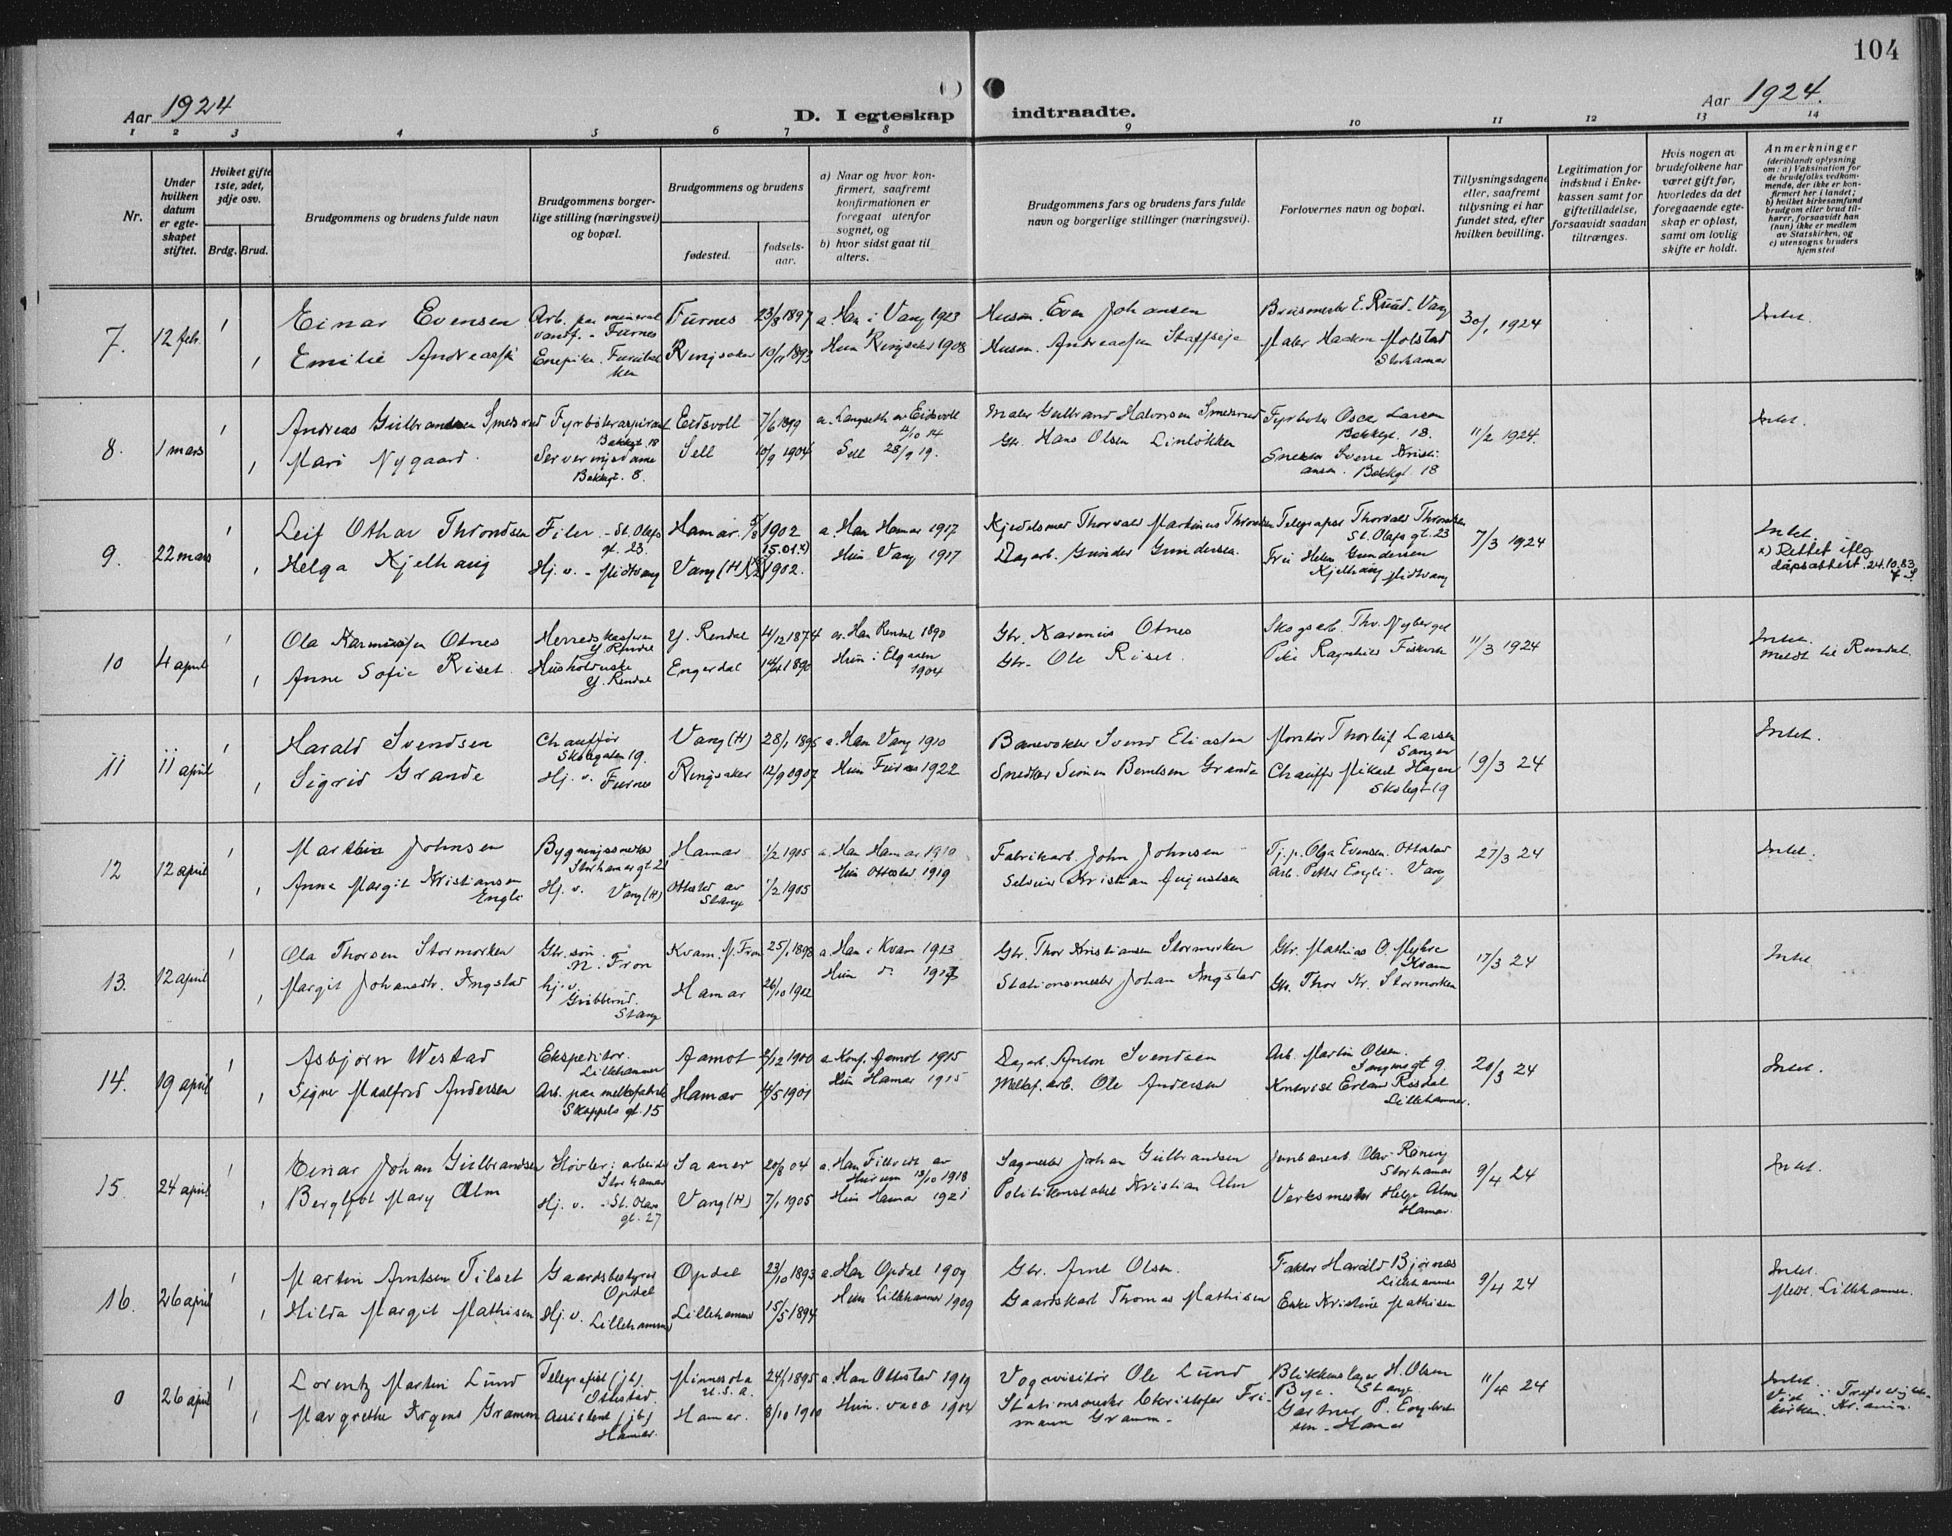 104
Aar 1924
D. I egteskap indtraadte.
Aar 1924.
1 2 3 4 5 6 7 8 9 10 11 12 13 14
Nr.
Under hvilken datum er egteskapet stiftet.
Hvilket gifte 1ste, 2det, 3dje osv.
Brdg. Brud.
Brudgommens og brudens fulde navn
Brudgommens borgerlige stilling (næringsvei) og bopæl.
Brudgommens og brudens
fødested.
fødselsaar.
a) Naar og hvor konfirmert, saafremt konfirmationen er foregaat utenfor sognet, og
b) hvor sidst gaat til alters.
Brudgommens fars og brudens fars fulde navn og borgerlige stillinger (næringsvei).
Forlovernes navn og bopæl.
Tillysningsdagene eller, saafremt tillysning ei har fundet sted, efter hvilken bevilling.
Legitimation for indskud i Enkekassen samt for giftetilladelse, forsaavidt saadan tiltrænges.
Hvis nogen av brudefolkene har været gift før, hvorledes da det foregaaende egteskap er opløst, samt om lovlig skifte er holdt.
Anmerkninger
(deriblandt oplysning om: a) Vaksination for de brudefolks vedkommende, der ikke er konfirmert her i landet; b) hvilket kirkesamfund brudgom eller brud tilhører, forsaavidt han (hun) ikke er medlem av Statskirken, og c) utensogns bruders hjemsted
7. 12 feb. 1 Einar Evensen Arb. paa mineral vandf. - Furnes Furnes 23/8 1897 a. Han i Vang 1913 Husm. Even Johansen E. Ruud - Vang 30/1 1924 Intet.
1 Emilie Ringsaker 1893 Hun Ringsaker 1908 Husm. Maler Haakon Molstad Storhamar
8. 1 mars 1 Andreas Gulbrandsen Smedsrud Fyrbøteraspirant Bakkegt. 18 Eidsvoll 7/6 1899 a. Langseth av Eidsvoll Maler Gulbrand Halvorsen Smedsrud Fyrbøter Oscar Larsen Bakkegt. 18. 11/2 1924. Intet.
1 Mari Nygaard. Serveringsdame Bakkegt. 8. Sell 10/9 1904 Sell 28/9 19. Gbr. Hans Olsen Linløkken Snekker Sverre Kristiansen. Bakkegt. 18
9. 22 mars 1 Leif Othar Throndsen Filer - St. Olafs gt. 23. Hamar. 1902 a. Han Hamar 1917 Thorvald Martinus Throndsen Telegrafist Thorvald Throndsen St. Olafs gt. 23 7/3 1924 Intet.
1 Helga Kjelhaug Hj. v. - Midtvang Vang (H) 1902. 15.01.x) Hun Vang 1917 Dagarb. Gunder Gundersen. Fru Helen Gundersen Kjelhaug Midtvang x) Rettet iflg dåpsattest. 24.10.83
10 4 april 1 Ola Otnes Herredskasserer Y. Rendal Y. Rendal 4/12 1874 a. Han Rendal 1890 Gbr. Karenus Otnes Skogsarb. Thv. Nyberget 11/3 1924 Intet.
1 Anne Sofie Riset. Husholderske Y. Rendal Engerdal 1890 Hun i Elgaaen 1904 Gbr. Ole Riset. Pike Ragnhild Meldt til Rendal.
11 11 april 1 Harald Svendsen Chauffør Skolegaten 19. Vang (H) 28/1 1895 a. Han Vang 1910 Banevokter Svend Eliassen Montør Thorleif Larsen 19/3 24 Intet.
1 Sigrid Grande Hj. v. Furnes Ringsaker 12/9 1907 Hun Furnes 1922 Snedker Simen Berntsen Grande Chauffør Mikael Hagen Skolegt 19
12 12 april 1 Johnsen Storhamargt 21 Hamar 1/2 1905 a. Han Hamar 1910 Fabrikarb. John Johnsen Tj. p. Olga Evensen. Ottestad 27/3 24 Intet.
1 Anna Margit Kristiansen Engli Hj. v. Vang (H) Ottestad av Stange 1/2 1905 Hun Ottestad 1919 Kristian Augustsen Arb. Petter Engli. Vang
13. 12 april 1 Ola Thorsen Stormorken Gbr. søn. N. Fron Kvam. N. Fron 25/1 1898 a. Han i Kvam 1913 Gbr. Thor Kristiansen Stormorken Gbr. Mathias O. Myhre Kvam 17/3 24 Intet
1 Margit Johansdtr. Ingstad hj. v. Gubberud. Stange Hamar 26/10 1902 Hun do. 1917 Stationsmester Johan Ingstad Gbr. Thor Kr. Stormorken
14. 19 april 1 Asbjørn Westad Ekspeditør. Lillehammer Aamot 1900 a. Konf. Aamot 1915 Dagarb. Anton Svendsen Arb. Martin Olsen. 20/3 24 Intet.
1 Signe Maalfrid Andersen Arb. paa melkefabrik Skappels gt. 15 Hamar 4/5 1901 Hun Hamar 1915 Melkef. arb. Ole Andersen Kontorist Erland Rosdal Lillehammer.
15. 24 april 1 Einar Johan Gulbrandsen Høvleriarbeider Storhamar 20/8 04 a. Han Filtvedt av Hurum 13/10 1918 Sagmester Johan Gulbrandsen Jernbanearb. Olav Røning Storhamar 9/4 24 Intet.
1 Bergljot Mary Alm Hj. v. - St. Olavs gt. 27 Vang (H) 7/1 1905 Hun Hamar 1921 Politikonstabel Kristian Alm Verksmester Helge Alm Hamar.
16. 26 april 1 Martin Arntsen Tilset Gaardsbestyrer Opdal Opdal 23/10 1893 a. Han Opdal 1909 Gbr. Arnt Olsen. Faktor Harald Bjørnæs Lillehammer 9/4 24 Intet.
1 Hilda Margit Mathisen Hj. v. Lillehammer Lillehammer 15/5 1894 Hun Lillehammer 1909 Gaardskarl Thomas Mathisen Enke Kristine Mathisen Meldt. Lillehammer.
0 26 april 1 Lorentz Martin Lund Telegrafist (jb). Ottestad. Minnesota U.S.A. 24/1 1895 a. Han Ottestad 1910 Vognvisitør Ole Lund Blikkenslager H. Olsen Stange 11/4 24 Intet.
1 Margrethe Krogens Gramm Assistent (jb) Hamar. Hamar. 8/10 1910 Hun. 1904 Stationsmester Christofer Frimann Gramm - Gartner P. Engebretsen - Hamar Viet i Trefoldighetskirken. Kr.ania.